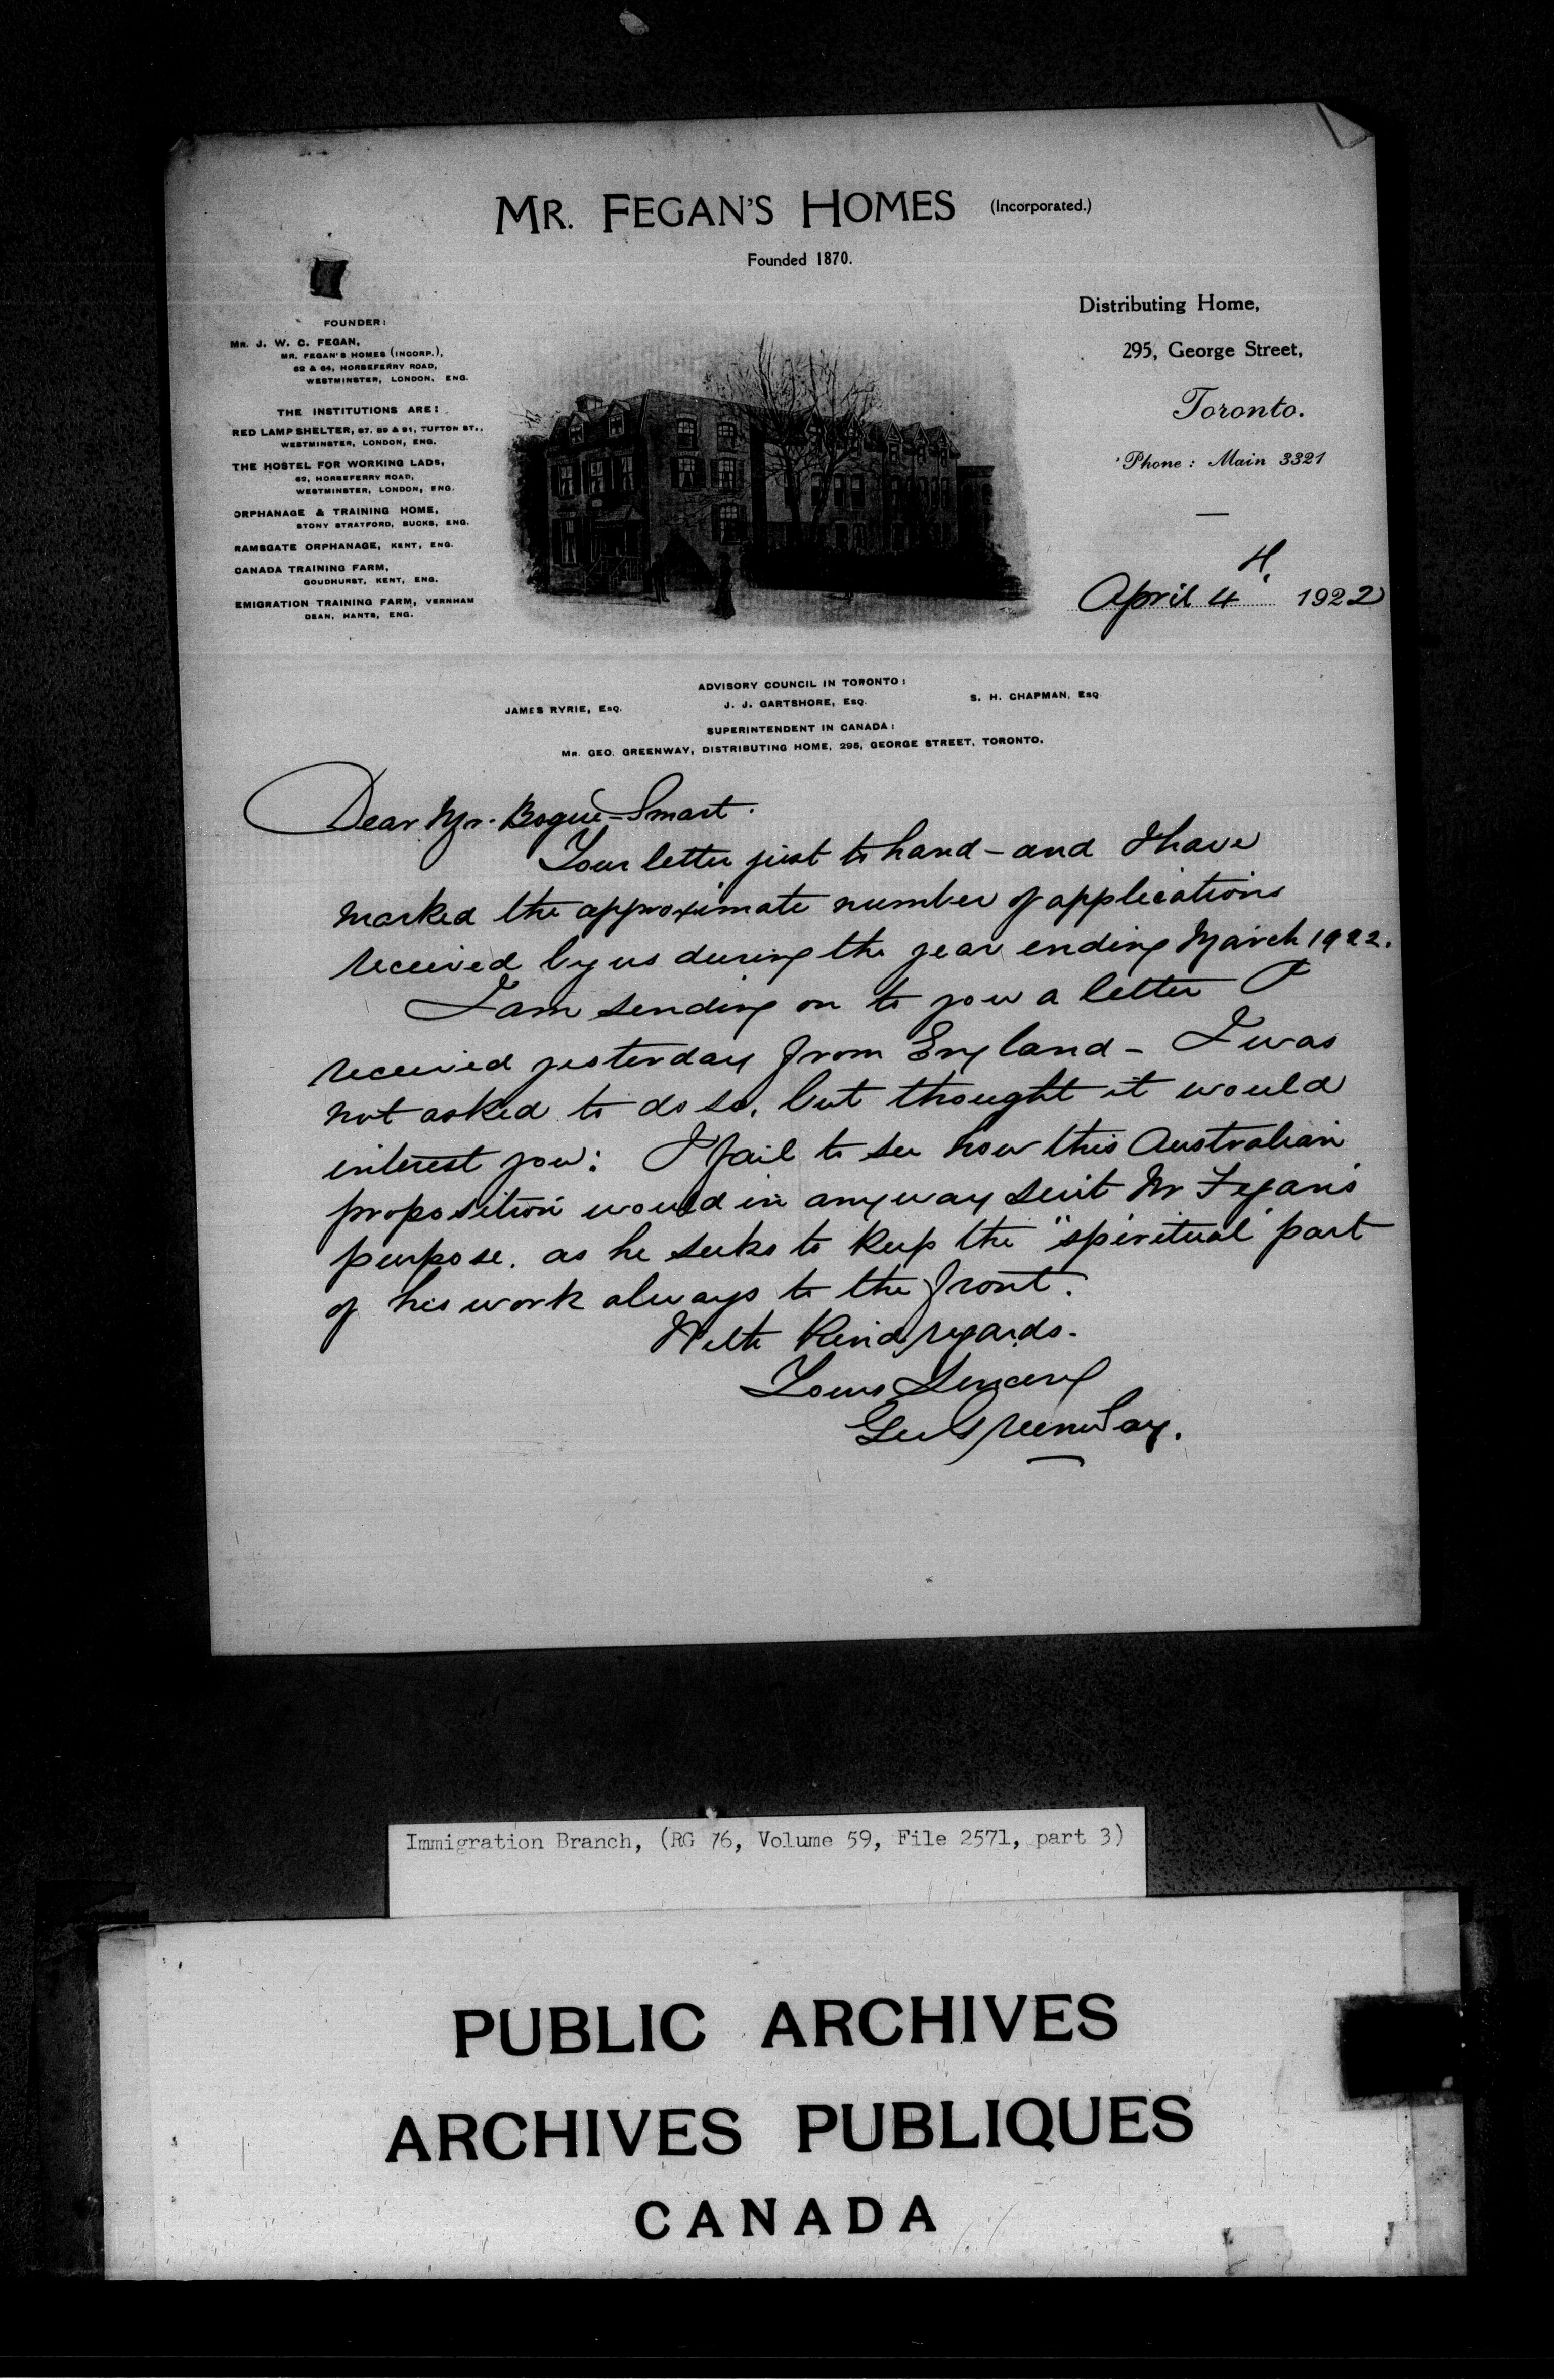 MR. FEGAN'S HOMES (Incorporated.)
Founded 1870.
FOUNDER:
MR. J. W. C. FEGAN,
MR. FEGAN'S HOMES (INCORP.),
62 & 64, HORSEFERRY ROAD,
WESTMINSTER, LONDON, ENG.
THE INSTITUTIONS ARE:
RED LAMP SHELTER, 87, 89 & 91, TUFTON ST.,
WESTMINSTER, LONDON, ENG.
THE HOSTEL FOR WORKING LADS,
62, HORSEFERRY ROAD,
WESTMINSTER, LONDON, ENG.
ORPHANAGE & TRAINING HOME,
STONY STRATFORD, BUCKS, ENG.
RAMSGATE ORPHANAGE, KENT, ENG.
CANADA TRAINING FARM,
GOUDHURST, KENT, ENG.
EMIGRATION TRAINING FARM, VERNHAM
DEAN, HANTS, ENG.
Distributing Home,
295, George Street,
Toronto.
'Phone: Main 3321
April 4th 1922
ADVISORY COUNCIL IN TORONTO:
JAMES RYRIE, ESQ. J. J. GARTSHORE, ESQ. S. H. CHAPMAN, ESQ.
SUPERINTENDENT IN CANADA:
MR. GEO. GREENWAY, DISTRIBUTING HOME, 295, GEORGE STREET, TORONTO.
Dear Mr. Bogue-Smart.
Your letter just to hand - and I have
marked the approximate number of applications
received by us during the year ending March 1922.
I am sending on to you a letter I
received yesterday from England - I was
not asked to do so, but thought it would
interest you: I fail to see how this Australian
proposition would in anyway suit Mr Fegan's
purpose. as he seeks to keep the "spiritual" part
of his work always to the front.
With kind regards.
Yours Sincerely
Geo Greenway.
Immigration Branch, (RG 76, Volume 59, File 2571, part 3)
PUBLIC ARCHIVES
ARCHIVES PUBLIQUES
CANADA